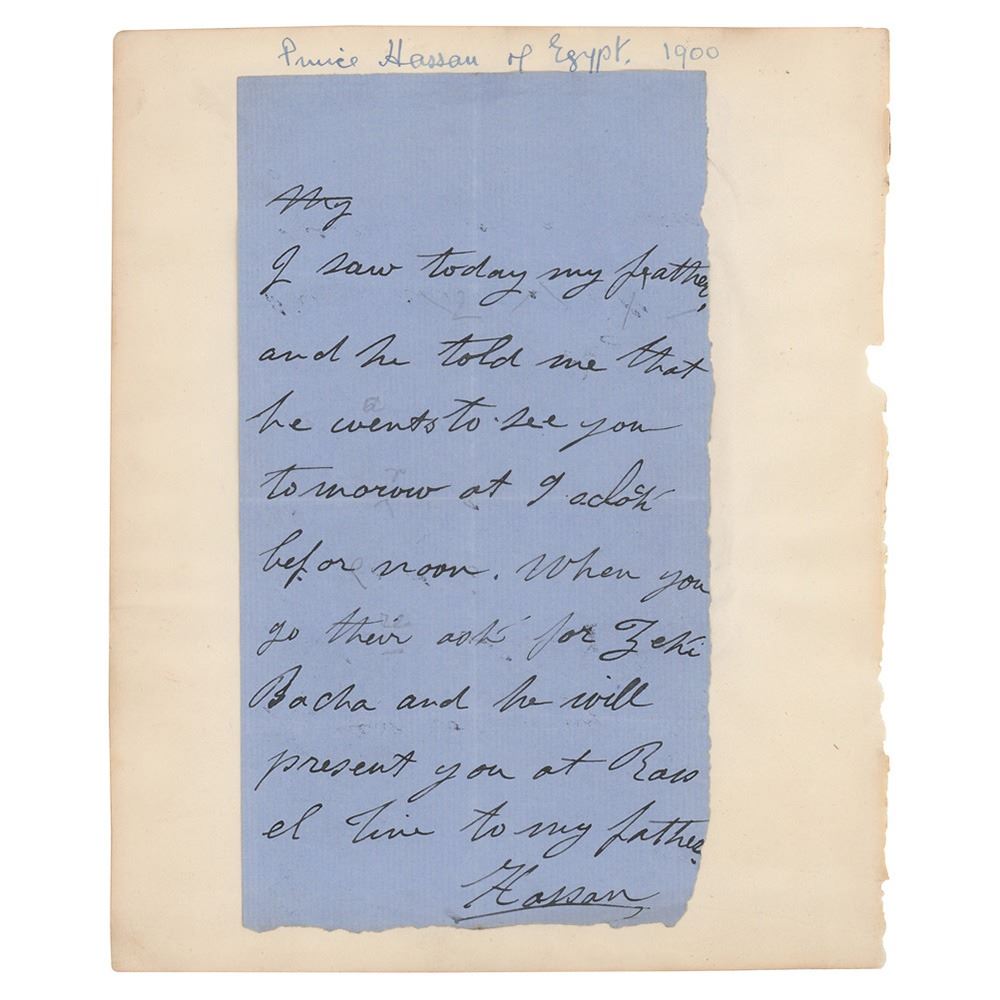 Prince Hassan of Egypt. 1900
My
I saw today my father,
and he told me that
he wents to see you
tomorow at 9 oclok
befor noon. When you
go their ask for Zeki
Bacha and he will
present you at Raw
el Tine to my father.
Hassan